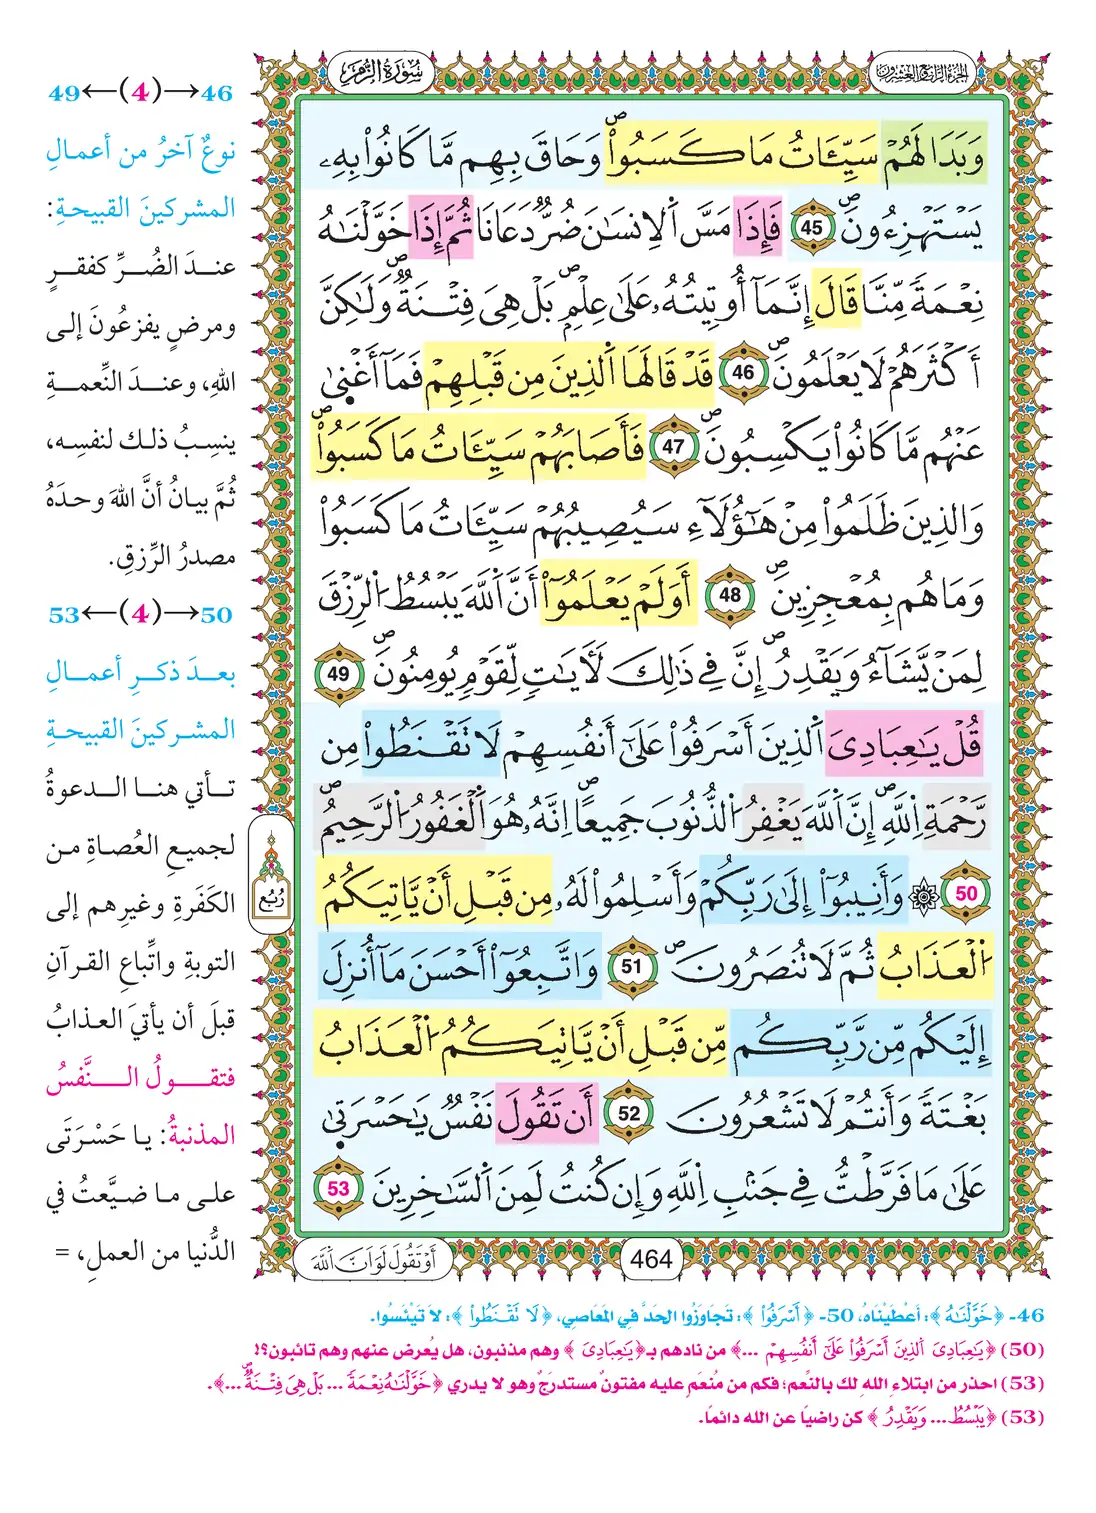 الجزء الرابع والعشرون
سُورَةُ الزُّمَرِ
وَبَدَا لَهُمْ سَيِّـَٔاتُ مَا كَسَبُواْۖ وَحَاقَ بِهِم مَّا كَانُواْ بِهِۦ
يَسْتَهْزِءُونَۖ 45 فَإِذَا مَسَّ اَلِانسَٰنَ ضُرّٞ دَعَانَا ثُمَّ إِذَا خَوَّلْنَٰهُ
نِعْمَةٗ مِّنَّا قَالَ إِنَّمَآ أُوتِيتُهُۥ عَلَىٰ عِلْمِۢۖ بَلْ هِيَ فِتْنَةٞۖ وَلَٰكِنَّ
أَكْثَرَهُمْ لَا يَعْلَمُونَۖ 46 قَدْ قَالَهَا اَلذِينَ مِن قَبْلِهِمْ فَمَآ أَغْنَىٰ
عَنْهُم مَّا كَانُواْ يَكْسِبُونَۖ 47 فَأَصَابَهُمْ سَيِّـَٔاتُ مَا كَسَبُواْۖ
وَالذِينَ ظَلَمُواْ مِنْ هَٰٓؤُلَآءِ سَيُصِيبُهُمْ سَيِّـَٔاتُ مَا كَسَبُواْ
وَمَا هُم بِمُعْجِزِينَۖ 48 أَوَلَمْ يَعْلَمُوٓاْ أَنَّ اَللَّهَ يَبْسُطُ اُلرِّزْقَ
لِمَنْ يَّشَآءُ وَيَقْدِرُۖ إِنَّ فِي ذَٰلِكَ لَأٓيَٰتٖ لِّقَوْمٖ يُومِنُونَۖ 49
قُلْ يَٰعِبَادِيَ اَلذِينَ أَسْرَفُواْ عَلَىٰٓ أَنفُسِهِمْ لَا تَقْنَطُواْ مِن
رَّحْمَةِ اِللَّهِۖ إِنَّ اَللَّهَ يَغْفِرُ اُلذُّنُوبَ جَمِيعاًۖ اِنَّهُۥ هُوَ اَلْغَفُورُ اُلرَّحِيمُۖ
50 ۞ وَأَنِيبُوٓاْ إِلَىٰ رَبِّكُمْ وَأَسْلِمُواْ لَهُۥ مِن قَبْلِ أَنْ يَّاتِيَكُمُ
اُلْعَذَابُ ثُمَّ لَا تُنصَرُونَۖ 51 وَاتَّبِعُوٓاْ أَحْسَنَ مَآ أُنزِلَ
إِلَيْكُم مِّن رَّبِّكُم مِّن قَبْلِ أَنْ يَّاتِيَكُمُ اُلْعَذَابُ
بَغْتَةٗ وَأَنتُمْ لَا تَشْعُرُونَ 52 أَن تَقُولَ نَفْسٞ يَٰحَسْرَتَىٰ
عَلَىٰ مَا فَرَّطتُّ فِي جَنۢبِ اِللَّهِ وَإِن كُنتُ لَمِنَ اَلسَّٰخِرِينَ 53
رُبُع
464
أَوْ تَقُولَ لَوَ اَنَّ اَللَّهَ
46→(4)←49
نوعٌ آخرُ من أعمـالِ
المشركينَ القبيحـةِ:
عنـدَ الضُـرِّ كفقـرٍ
ومرضٍ يفزعُونَ إلى
اللهِ، وعنـدَ النِّعمـةِ
ينسِـبُ ذلـك لنفسِـه،
ثُمَّ بيـانُ أنَّ اللهَ وحـدَهُ
مصدرُ الرِّزقِ.
50→(4)←53
بعـدَ ذكـرِ أعمـالِ
المشـركينَ القبيحـةِ
تـأتي هنـا الـدعوةُ
لجميعِ العُصـاةِ مـن
الكَفَرةِ وغيرِهم إلى
التوبةِ واتِّباعِ القـرآنِ
قبلَ أن يأتيَ العـذابُ
فتقـولُ النَّفسُ
المذنبةُ: يـا حَسْـرَتَى
علـى مـا ضـيَّعتُ في
الدُّنيا من العملِ، =
46- ﴿خَوَّلْنَٰهُ﴾: أعْطَيْنَاهُ، 50- ﴿أَسْرَفُواْ﴾: تَجَاوَزُوا الحَدَّ في المَعَاصِي، ﴿لَا تَقْنَطُواْ﴾: لا تَيْئَسُوا.
(50) ﴿يَٰعِبَادِيَ اَلذِينَ أَسْرَفُواْ عَلَىٰٓ أَنفُسِهِمْ ...﴾ من نادهم بـ﴿يَٰعِبَادِيَ﴾ وهم مذنبون، هل يُعرض عنهم وهم تائبون؟!
(53) احذر من ابتلاءِ اللهِ لك بالنِّعم؛ فكم من مُنعَم عليه مفتونٌ مستدرَجٌ وهو لا يدري ﴿خَوَّلْنَٰهُ نِعْمَةٗ ... بَلْ هِيَ فِتْنَةٞ ...﴾.
(53) ﴿يَبْسُطُ... وَيَقْدِرُ﴾ كن راضيًا عن الله دائمًا.